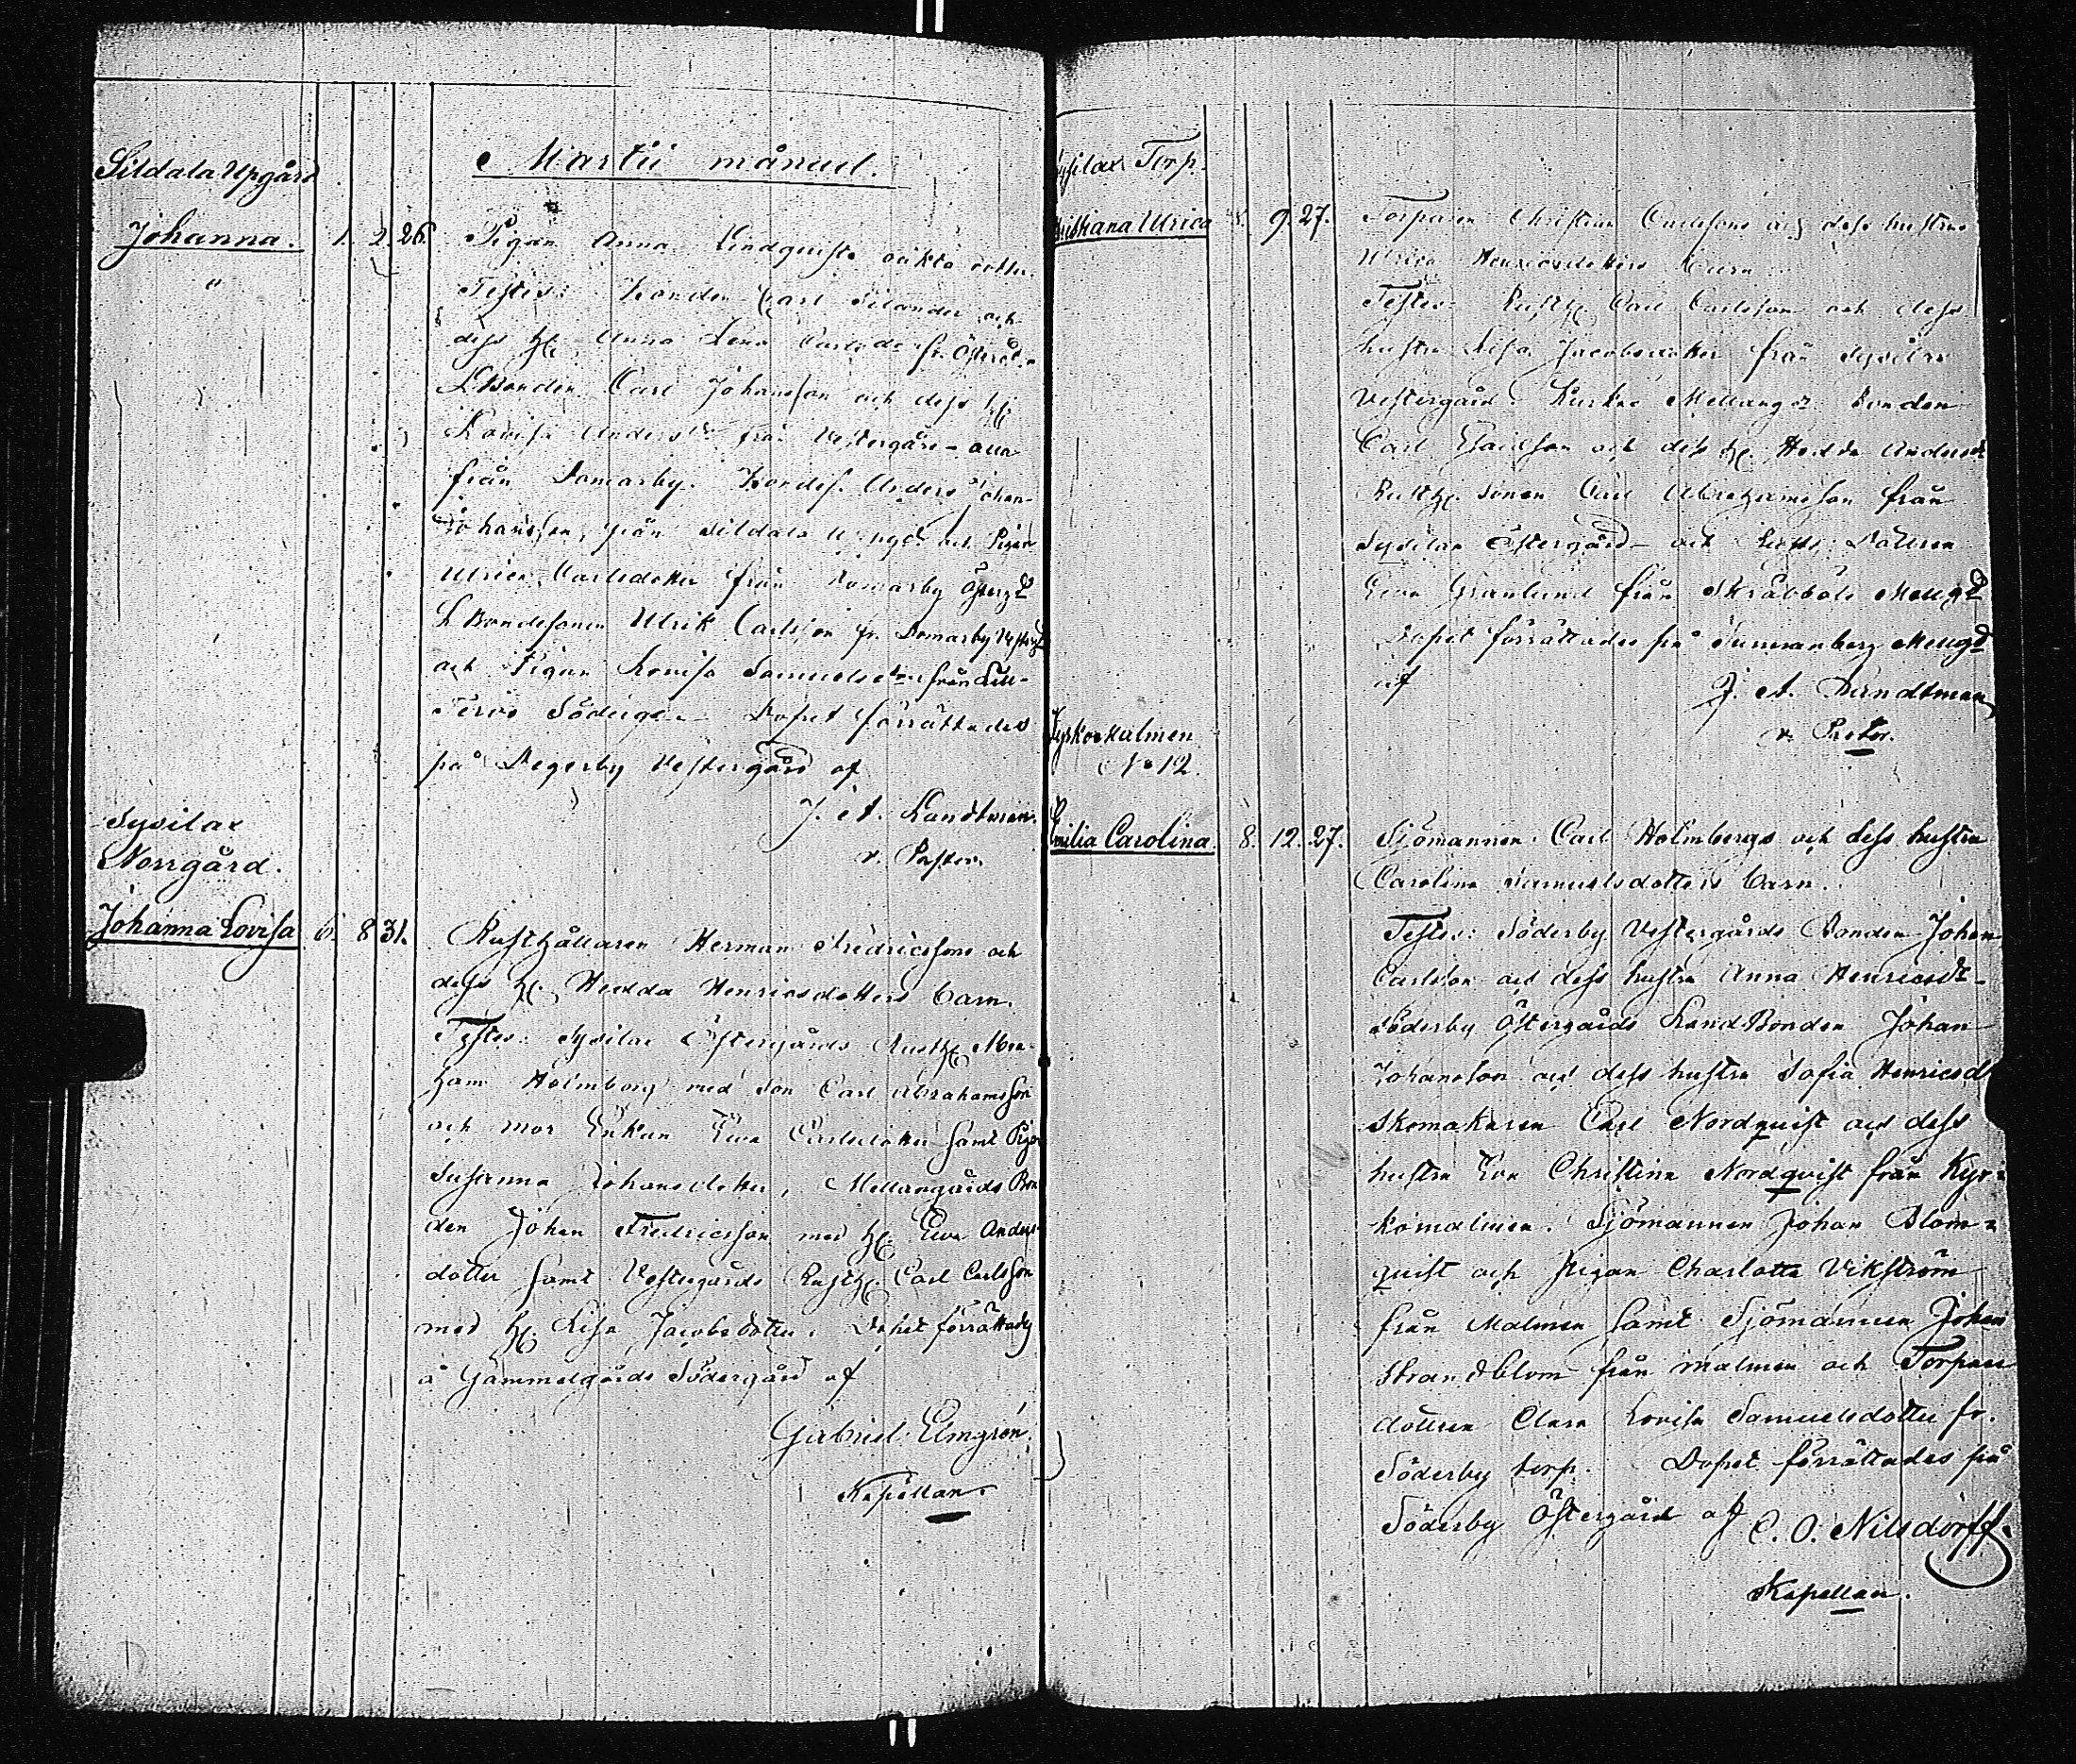 Martii månad.
Sildala Upgård
Johanna. 1. 2. 26. Pigan Anna Lindquists oäkta dotter.
Testes: Bonden Carl Silander och
dess H. Anna Lena Carlsdr fr. Österg.
LBonden Carl Johansson och dess H.
Lovisa Andersd. från Vestergård alla
från Domarby. Bondes. Anders Johan
Johansson från Sildala Uppgd. och Pigan
Ulrica Carlsdotter från Domarby Östergd
LBondesonen Ulrik Carlsson fr. Domarby Vestergd
och Pigan Lovisa Samuelsdtr. från Lill-
Tervo Söderg. Dopet förrättades
på Degerby Vestergård af
J. A. Landtman.
v. Pastor.
Sysilax
Norrgård.
Johanna Lovisa 6. 8 31. Rusthållaren Herman Fredricssons och
dess H. Hedda Henricsdotters barn.
Testes: Sysilax Östergårds Rusth. Abra-
ham Holmberg med son Carl Abrahamsson
och mor Enkan Eva Carlsdotter samt Pigan
Susanna Johansdotter, Mellangårds Bon
den Johan Fredricsson med H. Eva Anders
dotter samt Vestergårds Rusth. Carl Carlsson
med H. Lisa Jacobsdotter. Dopet förrättades
å Gammelgårds Södergård af
Gabriel Elmgren.
Kapellan.
Sysilax Torp.
Christiana Ulrica 8. 9. 27. Torparen Christian Carlssons och dess hustrus
Ulrica Henricsdotters barn
Testes: Rusth. Carl Carlsson och dess
hustru Lisa Jacobsdotter från Sysilax
Vestergård. Mellangd. bonden
Carl och dess H. Hedda Andersd.
Rusth. sonen Carl Abrahamsson från
Sysilax Östergård och dottren
Eva Granlund från Skråbböle Mellgd
Dopet förrättades på Summanberg Mellgd
af J. A. Landtman
v. Pastor.
Kyrkomalmen
No 12.
Emilia Carolina. 8. 12. 27. Sjömannen Carl Holmbergs och dess hustru
Carolina Samuelsdotters barn.
Testes: Söderby Vestergårds Bonden Johan
Carlsson och dess hustru Anna Henricsdt-
Söderby Östergårds LandBonden Johan
Johansson och dess hustru Sofia Henricsd
Skomakaren Carl Nordquist och dess
hustru Eva Christina Nordqvist från Kyr=
komalmen. Sjömannen Johan Blom=
quist och pigan Charlotta Vikström
från Malmen samt Sjömannen Johan
Strandblom från malmen och Torpare
dottren Clara Lovisa Samuelsdotter fr.
Söderby torp. Dopet förrättades på
Söderby Östergård af C. O. Nilsdorff.
Kapellan.